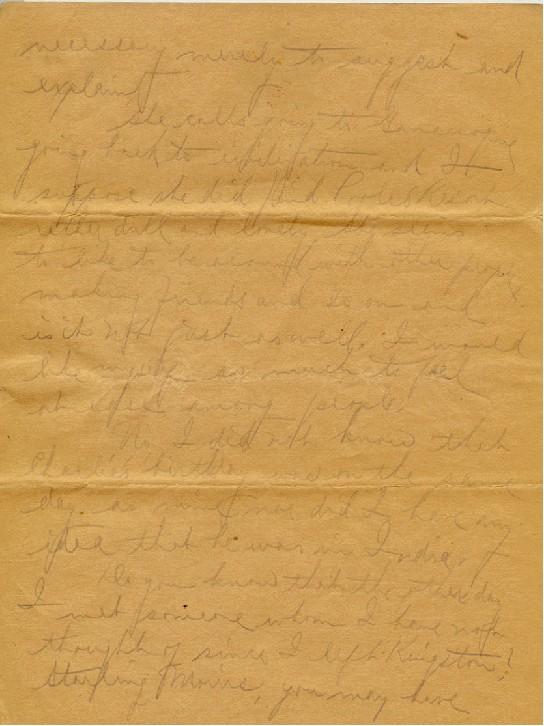 necessary merely to suggest and
explain
She calls going to Gananoque
going back to civilization and I
suppose she did find Pooles Resort
rather dull and lonely. She seems
to like to be around with other people
making friends and so on and
is it not just as well. I would
like myself so much to feel
at ease among people.
No I did not know that
Charlie's birthday was on the same
day as mine nor did I have any
idea that he was in India.
Do you know that the other day
I met someone whom I have not
thought of since I left Kingston?
Starling Morris, you may have